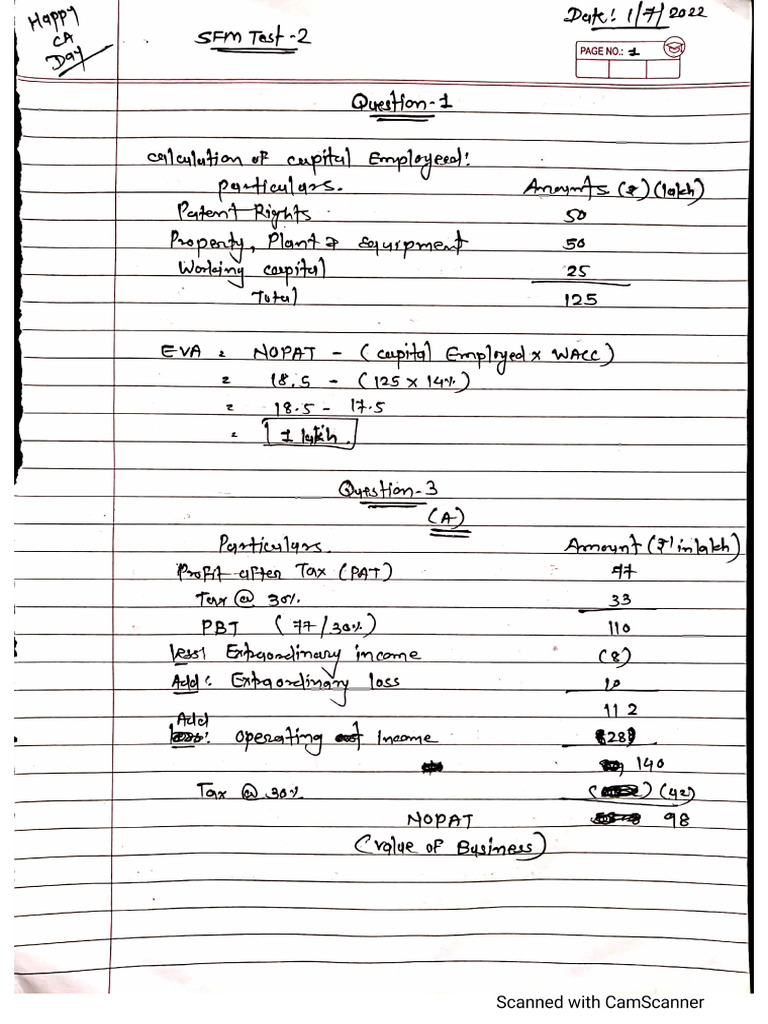 Happy
CA
Day
SFM Test-2
Date: 1/7/2022
PAGE NO.: 1
Question-1
Calculation of capital Employeed:
Particulars. Amounts (₹) (lakh)
Patent Rights 50
Property, Plant & Equipment 50
Working capital 25
Total 125
EVA = NOPAT - (capital Employed x WACC)
= 18.5 - (125 x 14%)
= 18.5 - 17.5
= 1 lakh.
Question-3
(A)
Particulars. Amount (₹ in lakh)
Profit after Tax (PAT) 77
Tax @ 30% 33
PBT (77/30%) 110
less: Extraordinary income (8)
Add: Extraordinary loss 10
112
Add
Operating Income 28
140
Tax @ 30% (42)
NOPAT 98
(Value of Business)
Scanned with CamScanner